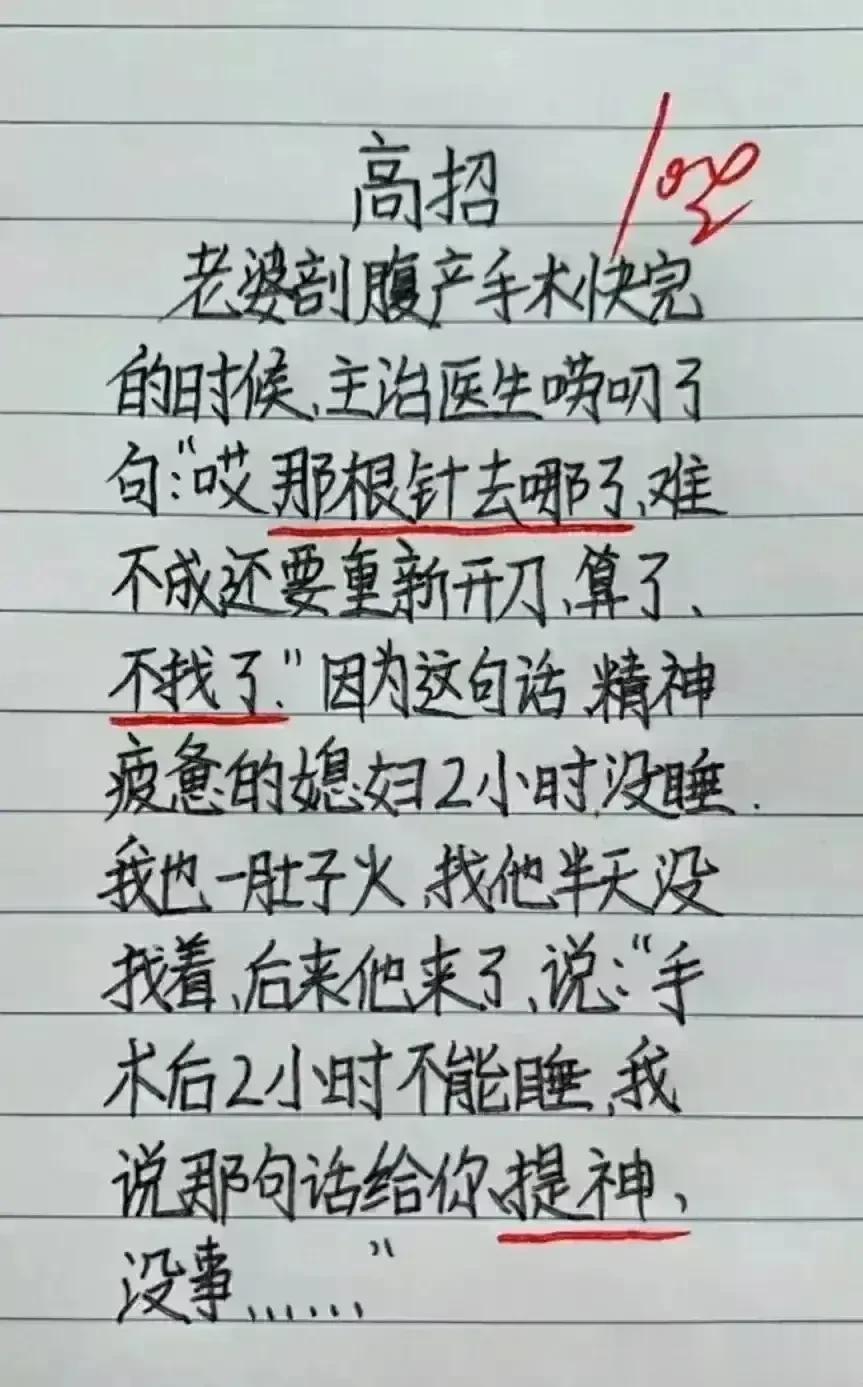 高招
100
老婆剖腹产手术快完
的时候、主治医生唠叨了
句:"哎那根针去哪了、难
不成还要重新开刀、算了、
不找了."因为这句话、精神
疲惫的媳妇2小时没睡.
我也一肚子火、找他半天没
找着、后来他来了、说:"手
术后2小时不能睡、我
说那句话给你、提神、
没事......"